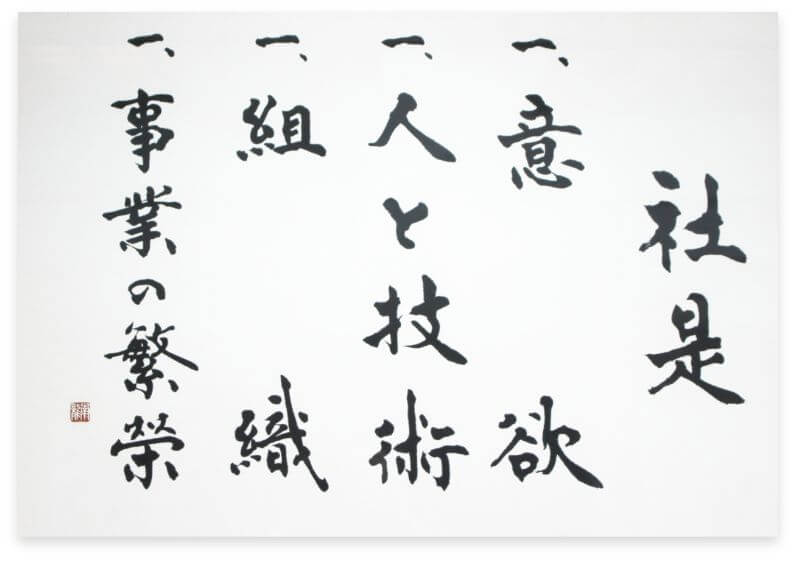 社是
一、意欲
一、人と技術
一、組織
一、事業の繁栄